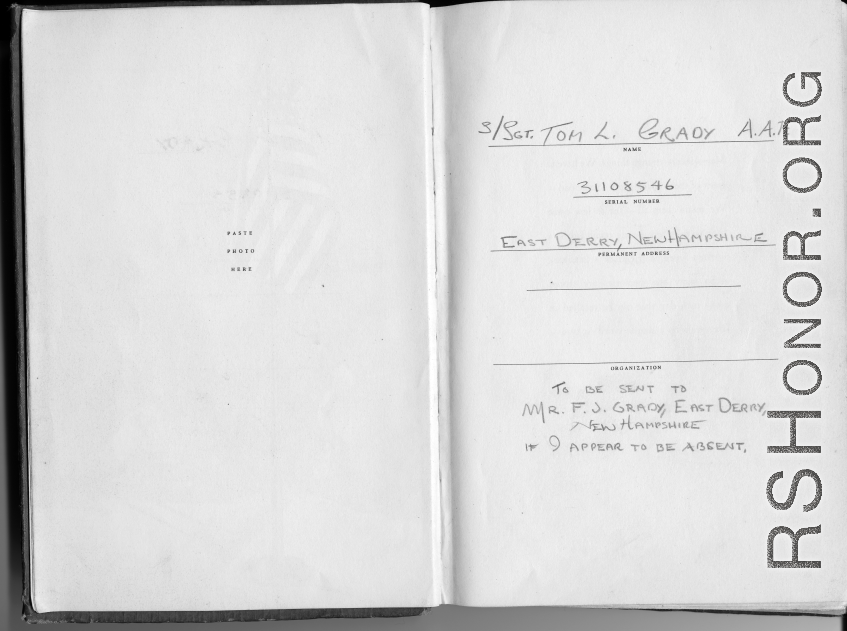 PASTE
PHOTO
HERE
S/SGT. TOM L. GRADY A.A.F.
NAME
31108546
SERIAL NUMBER
EAST DERRY, NEW HAMPSHIRE
PERMANENT ADDRESS
ORGANIZATION
TO BE SENT TO
MR. F. J. GRADY, EAST DERRY,
NEW HAMPSHIRE
IF I APPEAR TO BE ABSENT,
RSHONOR.ORG